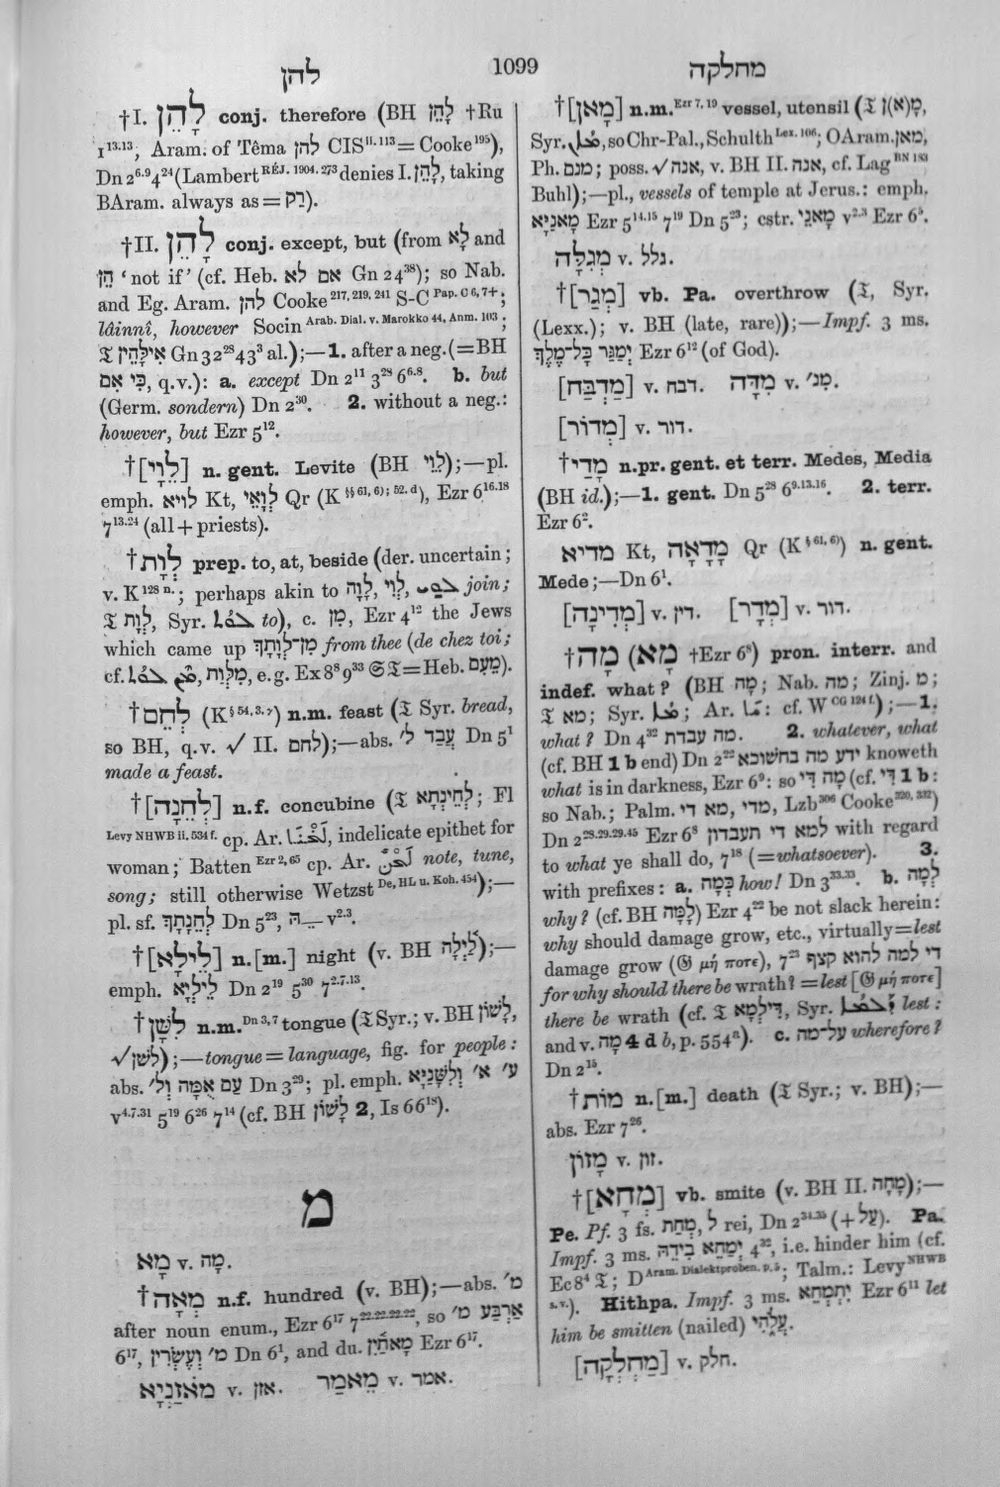 להן
1099
מחלקה
†I. לָהֵן conj. therefore (BH לָהֵן †Ru
1¹³·¹³; Aram. of Têma להן CIS ii. 113 = Cooke 195),
Dn 2⁶·⁹ 4²⁴ (Lambert RÉJ. 1904. 273 denies I. לָהֵן, taking
BAram. always as = רַק).
†II. לָהֵן conj. except, but (from לָא and
הֵן 'not if' (cf. Heb. אם לא Gn 24³⁸); so Nab.
and Eg. Aram. להן Cooke 217, 219, 241 S-C Pap. C 6, 7+;
lâinnî, however Socin Arab. Dial. v. Marokko 44, Anm. 103;
𝔗 אִילָּהֵין Gn 32²⁸ 43³ al.);—1. after a neg. (=BH
כִּי אִם, q.v.): a. except Dn 2¹¹ 3²⁸ 6⁶·⁸. b. but
(Germ. sondern) Dn 2³⁰. 2. without a neg.:
however, but Ezr 5¹².
†[לֵוָי] n. gent. Levite (BH לֵוִי);—pl.
emph. לויא Kt, לְוָאֵי Qr (K §§ 61, 6); 52. d), Ezr 6¹⁶·¹⁸
7¹³·²⁴ (all + priests).
†לְוָת prep. to, at, beside (der. uncertain;
v. K 128 n.; perhaps akin to לָוָה, לְוִי, join;
𝔗 לְוָת, Syr. to), c. מִן, Ezr 4¹² the Jews
which came up מִן־לְוָתָךְ from thee (de chez toi;
cf. מִלְּוַת, e.g. Ex 8⁸ 9³³ 𝔊𝔗 = Heb. מֵעִם).
†לְחֵם (K § 54, 3, γ) n.m. feast (𝔗 Syr. bread,
so BH, q.v. √ II. לחם);—abs. עֲבַד ל׳ Dn 5¹
made a feast.
†[לְחֵנָה] n.f. concubine (𝔗 לְחֵינְתָא; Fl
Levy NHWB ii. 534 f. cp. Ar. indelicate epithet for
woman; Batten Ezr 2, 65 cp. Ar. note, tune,
song; still otherwise Wetzst De, HL u. Koh. 454);—
pl. sf. לְחֵנָתָךְ Dn 5²³, ־ֵהּ v²·³.
†[לֵילְיָא] n.[m.] night (v. BH לַיְלָה);—
emph. לֵילְיָא Dn 2¹⁹ 5³⁰ 7²·⁷·¹³.
†לִשָּׁן n.m. Dn 3, 7 tongue (𝔗 Syr.; v. BH לָשׁוֹן,
√לשׁן);—tongue = language, fig. for people:
abs. עַם אֻמָּה וְל׳ Dn 3²⁹; pl. emph. ע׳ א׳ וְלִשָּׁנַיָּא
v⁴·⁷·³¹ 5¹⁹ 6²⁶ 7¹⁴ (cf. BH לָשׁוֹן 2, Is 66¹⁸).
מ
מָא v. מָה.
†מְאָה n.f. hundred (v. BH);—abs. מ׳
after noun enum., Ezr 6¹⁷ 7²²·²²·²²·²², so אַרְבַּע מ׳
6¹⁷, מ׳ וְעֶשְׂרִין Dn 6¹, and du. מָאתַיִן Ezr 6¹⁷.
מֹאזַנְיָא v. אזן. מֵאמַר v. אמר.
†[מָאן] n.m. Ezr 7, 19 vessel, utensil (𝔗 מָ(א)ן,
Syr. so Chr-Pal., Schulth Lex. 106; OAram. מאן,
Ph. מנם; poss. √אנה, v. BH II. אנה, cf. Lag BN 183
Buhl);—pl., vessels of temple at Jerus.: emph.
מָאנַיָּא Ezr 5¹⁴·¹⁵ 7¹⁹ Dn 5²³; cstr. מָאנֵי v²·³ Ezr 6⁵.
מְגִלָּה v. גלל.
†[מְגַר] vb. Pa. overthrow (𝔗, Syr.
(Lexx.); v. BH (late, rare));—Impf. 3 ms.
יְמַגַּר כָּל־מֶלֶךְ Ezr 6¹² (of God).
[מַדְבַּח] v. דבח. מִדָּה v. מנ׳.
[מְדוֹר] v. דור.
†מָדַי n.pr. gent. et terr. Medes, Media
(BH id.);—1. gent. Dn 5²⁸ 6⁹·¹³·¹⁶. 2. terr.
Ezr 6².
מדיא Kt, מָדָאָה Qr (K § 61, 6) n. gent.
Mede;—Dn 6¹.
[מְדִינָה] v. דין. [מְדָר] v. דור.
†מָה (מָא †Ezr 6⁸) pron. interr. and
indef. what? (BH מָה; Nab. מה; Zinj. מ;
𝔗 מא; Syr. ; Ar. : cf. W CG 124 f.);—1.
what? Dn 4³² מה עבדת. 2. whatever, what
(cf. BH 1 b end) Dn 2²² ידע מה בחשׁוכא knoweth
what is in darkness, Ezr 6⁹: so מָה דִי (cf. דִּי 1 b:
so Nab.; Palm. מדי, מא די, Lzb 306 Cooke 320, 332)
Dn 2²⁸·²⁹·²⁹·⁴⁵ Ezr 6⁸ למא די תעבדון with regard
to what ye shall do, 7¹⁸ (=whatsoever). 3.
with prefixes: a. כְּמָה how! Dn 3³³·³³. b. לְמָה
why? (cf. BH לָמָּה) Ezr 4²² be not slack herein:
why should damage grow, etc., virtually = lest
damage grow (𝔊 μή ποτε), 7²³ די למה להוא קצף
for why should there be wrath? = lest [𝔊 μή ποτε]
there be wrath (cf. 𝔗 דִּילְמָא, Syr. lest:
and v. מָה 4 d b, p. 554ª). c. עַל־מָה wherefore?
Dn 2¹⁵.
†מוֹת n.[m.] death (𝔗 Syr.; v. BH);—
abs. Ezr 7²⁶.
מָזוֹן v. זון.
†[מְחָא] vb. smite (v. BH II. מָחָה);—
Pe. Pf. 3 fs. מְחָת, ל rei, Dn 2³⁴·³⁵ (+עַל). Pa.
Impf. 3 ms. יְמַחֵא בִידֵהּ 4³², i.e. hinder him (cf.
Ec 8⁴ 𝔗; D Aram. Dialektproben. p. 5; Talm.: Levy NHWB
s.v.). Hithpa. Impf. 3 ms. יִתְמְחֵא Ezr 6¹¹ let
him be smitten (nailed) עֲלֹהִי.
[מַחְלְקָה] v. חלק.